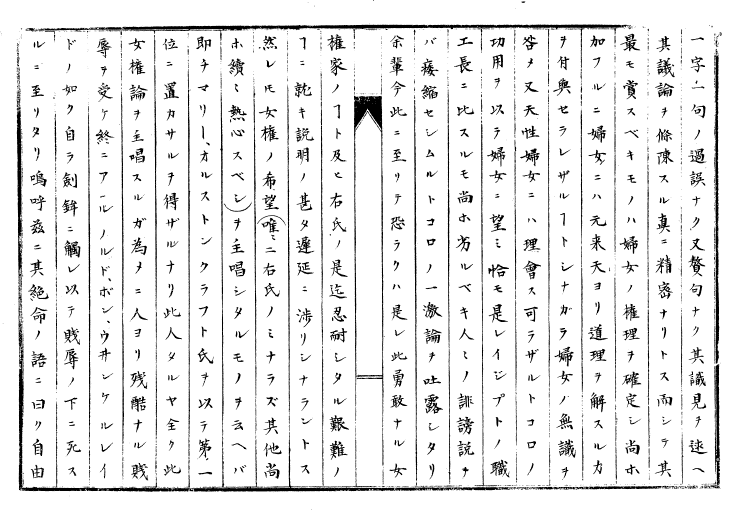 一字一句ノ過誤ナク又贅句ナク其識見ヲ述ヘ
其議論ヲ條陳スル真ニ精密ナリトス而シテ其
最モ賞スベキモノハ婦女ノ権理ヲ確定シ尚ホ
加フルニ婦女ニハ元来天ヨリ道理ヲ解スルカ
ヲ付與セラレザルヿトシナガラ婦女ノ無識ヲ
咎メ又天性婦女ニハ理會ス可ラザルトコロノ
功用ヲ以テ婦女ニ望ミ恰モ是レイジプトノ職
工長ニ比スルモ尚ホ劣ルベキ人ミノ誹謗説ヲ
バ痿縮セシムルトコロノ一激論ヲ吐露シタリ
余輩今此ニ至リテ恐ラクハ是レ此勇敢ナル女
権家ノヿト及ヒ右氏ノ是迄忍耐シタル艱難ノ
ヿニ就キ説明ノ甚タ遅延ニ渉リシナラントス
然レ𪜈女権ノ希望(唯ミニ右氏ノミナラズ其他尚
ホ續ミ熱心スベシ)ヲ主唱シタルモノヲ云ヘバ
即チマリー、オルストンクラフト氏ヲ以テ第一
位ニ置カサルヲ得ザルナリ此人タルヤ全ク此
女権論ヲ主唱スルガ為メニ人ヨリ残酷ナル賤
辱ヲ受ケ終ニアールノルド、ボン、ウヰンケルレイ
ドノ如ク自ラ劍鉾ニ觸レ以テ賤辱ノ下ニ死ス
ルニ至リタリ嗚呼茲ニ其絶命ノ語ニ曰ク自由